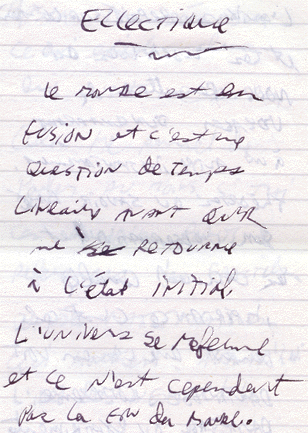 Ellectique
le monde est en
fusion et c'est une
question de temps
linéaire avant qu'il
ne se retourne
à l'état initial.
L'univers se referme
et ce n'est cependant
pas la fin du monde.